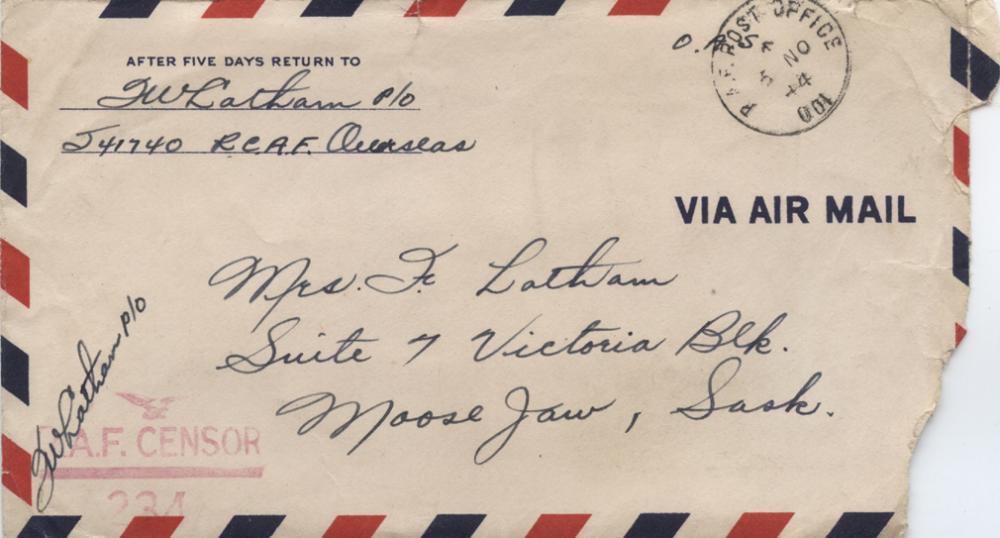 AFTER FIVE DAYS RETURN TO
FW Latham P/O
J41740 R.C.A.F. Overseas
O.A.S.
R.A.F. POST OFFICE 001
5 NO
44
VIA AIR MAIL
Mrs. F. Latham
Suite 7 Victoria Blk.
Moose Jaw, Sask.
FW Latham P/O
R.A.F. CENSOR
234